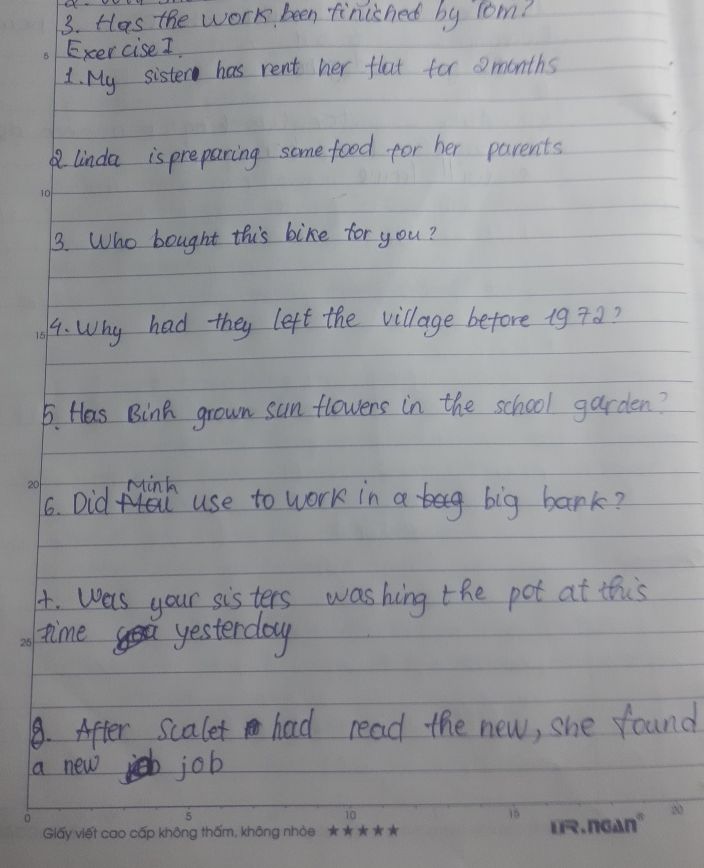 3. Has the work been finished by Tom?
Exercise I.
1. My sister has rent her flat for 2 months
2 linda is preparing some food for her parents
3. Who bought this bike for you?
4. Why had they left the village before 1972?
5. Has Binh grown sun flowers in the school garden?
Minh
6. Did use to work in a bag big bank?
7. Was your sisters washing the pot at this
time yesterday
8. After Scalet had read the new, she found
a new job
5
10
15
20
25
0 5 10 15 20
Giấy viết cao cấp không thấm, không nhòe ★★★★★
UR.NGAN®